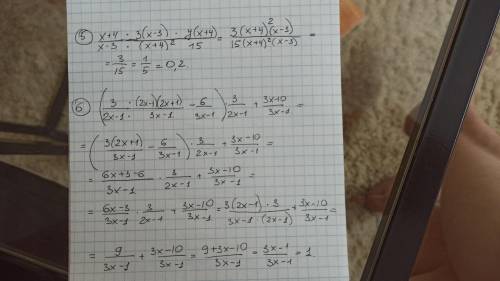 (5) (x+4)/(x-3) · 3(x-3)/(x+4)² · y(x+4)/15 = 3(x+4)²(x-3)/15(x+4)²(x-3) =
= 3/15 = 1/5 = 0,2
(6) (3/(2x-1) · (2x-1)(2x+1)/(3x-1) - 6/(3x-1)) · 3/(2x-1) + (3x-10)/(3x-1) =
= (3(2x+1)/(3x-1) - 6/(3x-1)) · 3/(2x-1) + (3x-10)/(3x-1) =
= (6x+3-6)/(3x-1) · 3/(2x-1) + (3x-10)/(3x-1) =
= (6x-3)/(3x-1) · 3/(2x-1) + (3x-10)/(3x-1) = (3(2x-1)·3)/(3x-1·(2x-1)) + (3x-10)/(3x-1) =
= 9/(3x-1) + (3x-10)/(3x-1) = (9+3x-10)/(3x-1) = (3x-1)/(3x-1) = 1